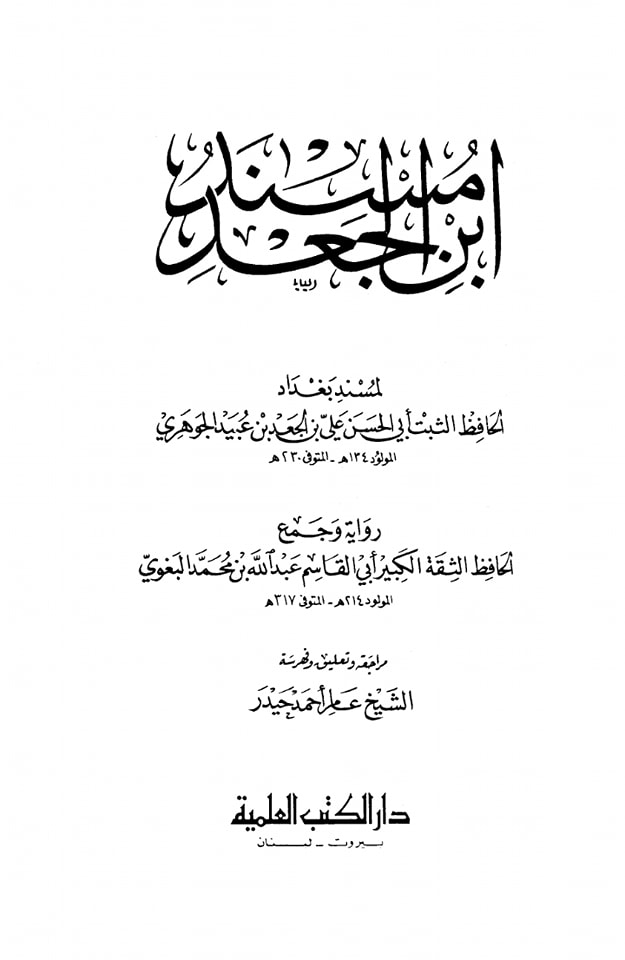 مُسْنَد
ابْنِ الجَعْد
لمُسْنِد بَغْدَاد
الحَافِظ الثبت أبي الحَسَن عَليّ بن الجَعد بن عُبيَد الجَوهَري
المولود ١٣٤هـ - المتوفى ٢٣٠هـ
رِوَاية وَجَمع
الحَافِظ الثِقَة الكَبير أبي القَاسِم عَبد الله بن مُحمَّد البَغويّ
المولود ٢١٤هـ - المتوفى ٣١٧هـ
مراجعة وتعليق وفهرسة
الشَّيْخ عَامر أحمَد حَيدَر
دار الكتب العلمية
بيروت - لبنان